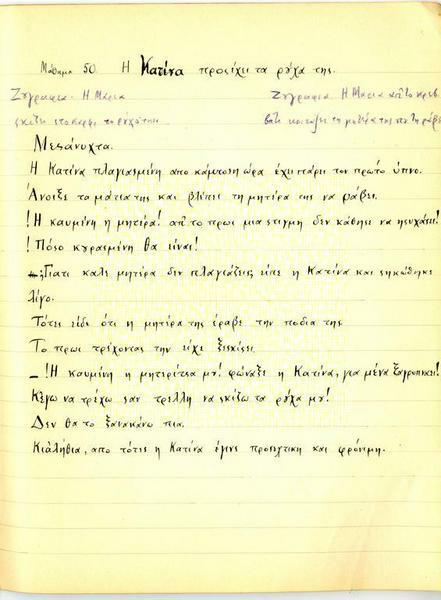 Μάθημα 50. Η Κατίνα προσέχει τα ρούχα της.
Ζωγραφια. Η Μαρια
Ζωγραφια. Η Μαρια απ το κρεβ
σκίζει
βάτι κοιταζει τη μητέρα της να τη ράβει
Μεσάνυχτα.
Η Κατίνα πλαγιασμένη απο κάμποση ώρα έχει πάρει τον πρωτο ύπνο.
Άνοιξε τα μάτια της και βλέπει τη μητέρα της να ράβει.
!Η καυμένη η μητέρα! απ το πρωι μια στιγμη δεν κάθησε να ησυχάσει!
!Πόσο κουρασμένη θα είναι!
;Γιατι καλε μητέρα δεν πλαγιάζεις; είπε η Κατίνα και σηκώθηκε
λίγο.
Τότες είδε ότι η μητέρα της έραβε την ποδια της
Το πρωι τρέχοντας την είχε ξεσκίσει.
_ !Η καυμένη η μητερίτσα μου! φώναξε η Κατίνα, για μένα ξαγρυπνάει!
Κ'εγω να τρέχω σαν τρελλη να σκίζω τα ρούχα μου!
Δεν θα το ξανακάνω πια.
Κι αλήθια, απο τότες η Κατίνα έγινε προσεχτικη και φρόνιμη.